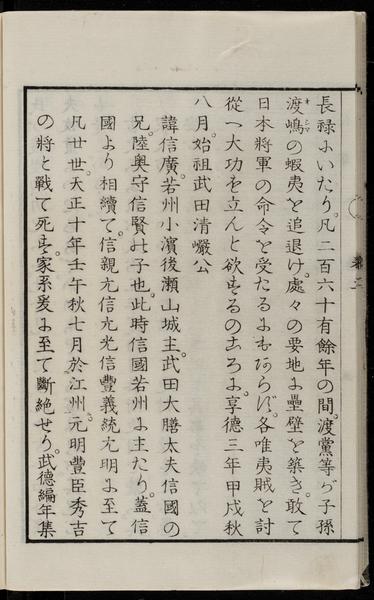 長禄にいたり。凡二百六十有餘年の間。渡黨等が子孫
渡嶋の蝦夷を追退け。處々の要地に壘壁を築き。敢て
日本將軍の命令を受たるにもあらず。各唯夷賊を討
從へ大功を立んと欲するのころに。享德三年甲戌秋
八月。始祖武田清巖公
諱信廣。若州小濱後瀬山城主。武田大膳太夫信國の
兄。陸奥守信賢の子也。此時信國若州に主たり。蓋信
國より相續て。信親元信元光信豐義統元明に至て
凡廿世。天正十年壬午秋七月於江州。元明豐臣秀吉
の將と戰て死す。家系爰に至て斷絶せり。武德編年集